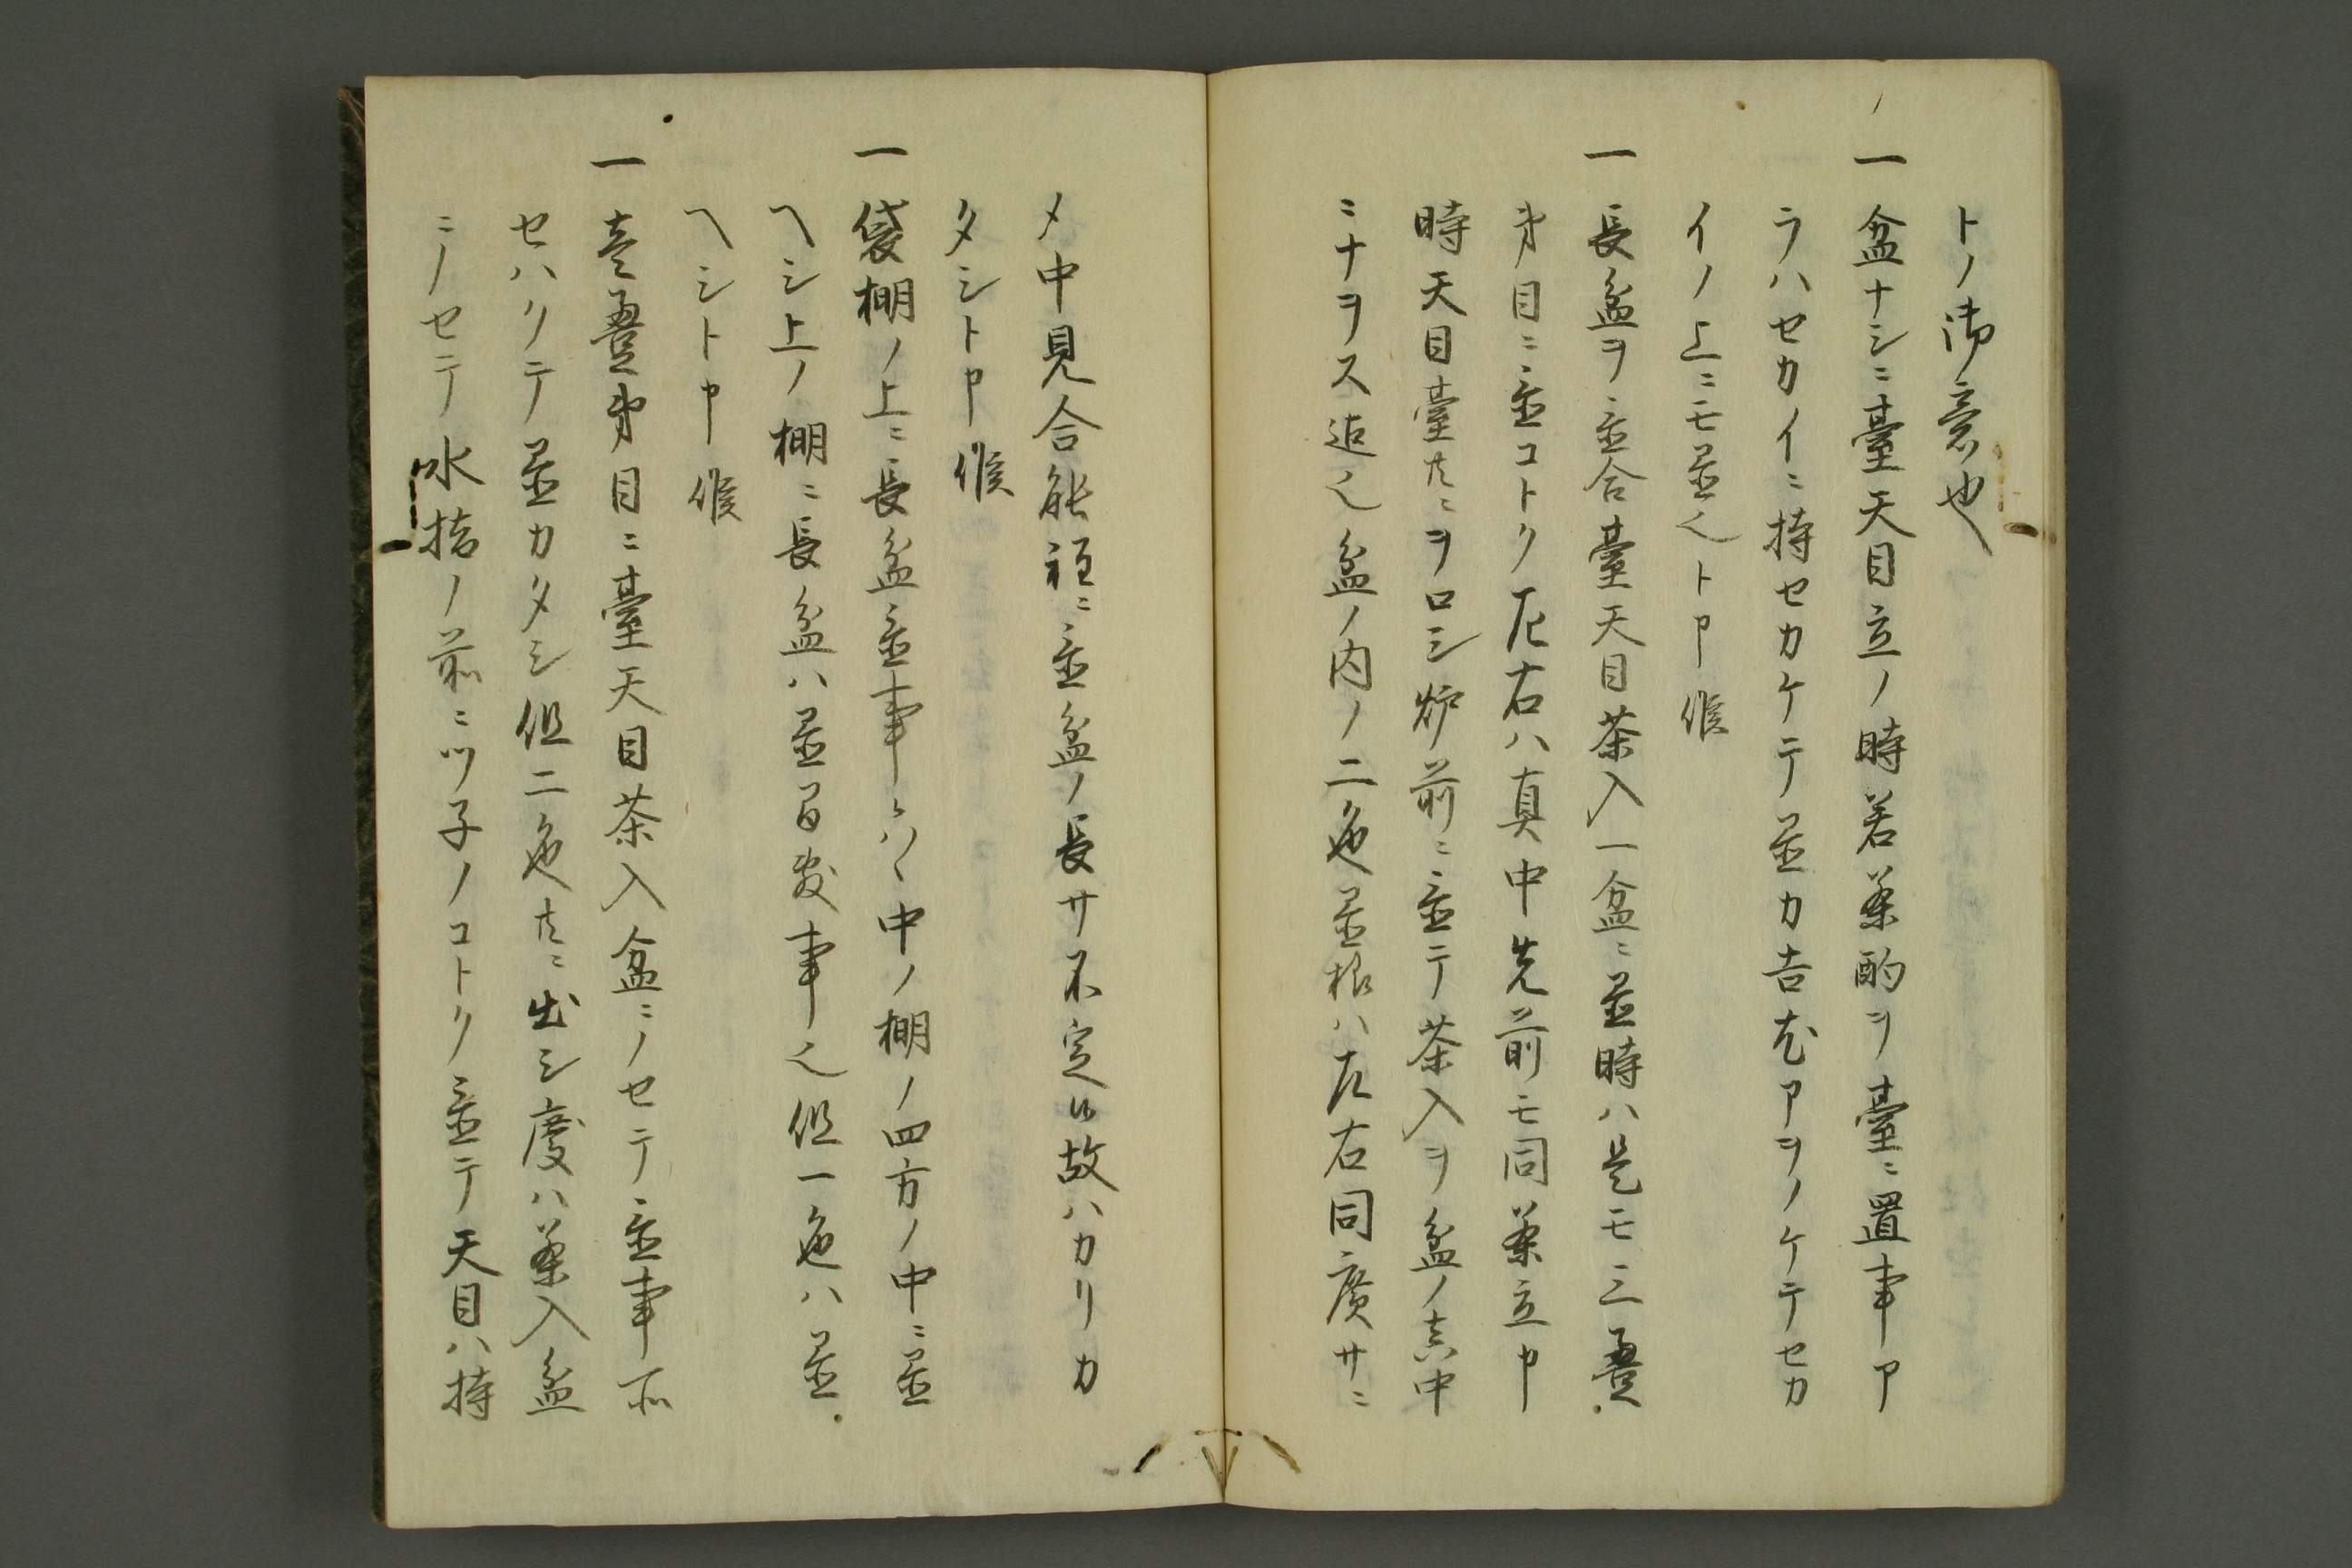 トノ御意也
一 盆ナシニ臺天目立ノ時若茶酌ヲ臺ニ置事ア
ラハセカイニ持セカケテ置カ吉尤アヲノケテセカ
イノ上ニモ置也ト申候
一 長盆ヲ置合臺天目茶入一盆ニ置時ハ是モ三疊
目ニ置コトク左右ハ真中先前モ同茶立申
時天目臺共ニヲロシ炉前ニ置テ茶入ヲ盆ノ真中
ニナヲス迄也盆ノ内ノ二色置様ハ左右同廣サニ
メ中見合能程ニ置盆ノ長サ不定候故ハカリカ
タシト申候
一 袋棚ノ上ニ長盆置事ハ中ノ棚ノ四方ノ中ニ置
ヘシ上ノ棚ニ長盆ハ置間敷事也但一色ハ置
ヘシト申候
一 壱疊目ニ臺天目茶入盆ニノセテ置事所
セハクテ置カタシ但二色共ニ出シ度ハ茶入盆
ニノセテ水指ノ前ニツ子ノコトク置テ天目ハ持